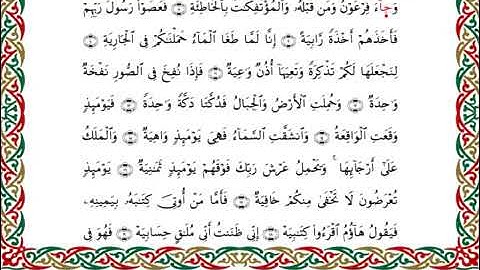 وَجَآءَ فِرْعَوْنُ وَمَن قَبْلَهُۥ وَٱلْمُؤْتَفِكَٰتُ بِٱلْخَاطِئَةِ ۝ فَعَصَوْا۟ رَسُولَ رَبِّهِمْ
فَأَخَذَهُمْ أَخْذَةً رَّابِيَةً ۝ إِنَّا لَمَّا طَغَا ٱلْمَآءُ حَمَلْنَٰكُمْ فِى ٱلْجَارِيَةِ ۝
لِنَجْعَلَهَا لَكُمْ تَذْكِرَةً وَتَعِيَهَآ أُذُنٌ وَٰعِيَةٌ ۝ فَإِذَا نُفِخَ فِى ٱلصُّورِ نَفْخَةٌ
وَٰحِدَةٌ ۝ وَحُمِلَتِ ٱلْأَرْضُ وَٱلْجِبَالُ فَدُكَّتَا دَكَّةً وَٰحِدَةً ۝ فَيَوْمَئِذٍ
وَقَعَتِ ٱلْوَاقِعَةُ ۝ وَٱنشَقَّتِ ٱلسَّمَآءُ فَهِىَ يَوْمَئِذٍ وَاهِيَةٌ ۝ وَٱلْمَلَكُ
عَلَىٰٓ أَرْجَآئِهَا ۚ وَيَحْمِلُ عَرْشَ رَبِّكَ فَوْقَهُمْ يَوْمَئِذٍ ثَمَٰنِيَةٌ ۝ يَوْمَئِذٍ
تُعْرَضُونَ لَا تَخْفَىٰ مِنكُمْ خَافِيَةٌ ۝ فَأَمَّا مَنْ أُوتِىَ كِتَٰبَهُۥ بِيَمِينِهِۦ
فَيَقُولُ هَآؤُمُ ٱقْرَءُوا۟ كِتَٰبِيَهْ ۝ إِنِّى ظَنَنتُ أَنِّى مُلَٰقٍ حِسَابِيَهْ ۝ فَهُوَ فِى